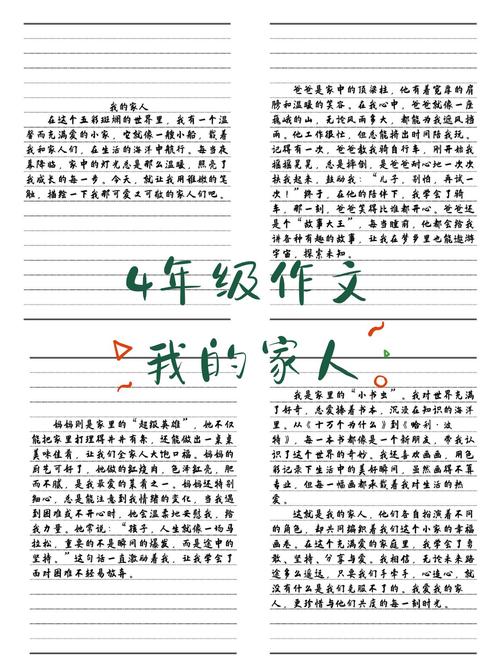 我的家人
在这个五彩斑斓的世界里，我有一个温
馨而充满爱的小家，它就像一艘小船，载着
我和家人们，在生活的海洋中航行。每当夜
幕降临，家中的灯光总是那么温暖，照亮了
我成长的每一步。今天，就让我用稚嫩的笔
触，描绘一下我那可爱又可敬的家人们吧。
爸爸是家中的顶梁柱，他有着宽厚的肩
膀和温暖的笑容。在我心中，爸爸就像一座
巍峨的山，无论风雨多大，都能为我遮风挡
雨。他工作很忙，但总能挤出时间陪我玩。
记得有一次，爸爸教我骑自行车，刚开始我
摇摇晃晃，总是摔倒，是爸爸耐心地一次次
扶我起来，鼓励我：“儿子，别怕，再试一
次！”终于，在他的陪伴下，我学会了骑
车，那一刻，爸爸笑得比谁都开心。爸爸还
是个“故事大王”，每当睡前，他都会给我
讲各种有趣的故事，让我在梦乡里也能遨游
宇宙，探索未知。
4年级作文
我的家人
妈妈则是家里的“超级英雄”，她不仅
能把家里打理得井井有条，还能做出一桌桌
美味佳肴，让我们全家人大饱口福。妈妈的
厨艺可好了，她做的红烧肉，色泽红亮，肥
而不腻，是我最爱的菜肴之一。妈妈还特别
细心，总是能注意到我情绪的变化，当我遇
到困难或不开心时，她会温柔地安慰我，给
我力量。她常说：“孩子，人生就像一场马
拉松，重要的不是瞬间的爆发，而是途中的
坚持。”这句话一直激励着我，让我学会了
面对困难不轻易放弃。
我是家里的“小书虫”。我对世界充满
了好奇，总爱捧着书本，沉浸在知识的海洋
里。从《十万个为什么》到《哈利·波
特》，每一本书都像是一个新朋友，带我认
识了这个世界的奇妙。我还喜欢画画，用色
彩记录下生活中的美好瞬间，虽然画得不算
专业，但每一幅都承载着我对生活的热
爱。
这就是我的家人，他们各自扮演着不同
的角色，却共同编织着我们这个小家的幸福
画卷。在这个充满爱的家庭里，我学会了勇
敢、坚持、分享与爱。我相信，无论未来路
途多么遥远，只要我们手牵手，心连心，就
没有什么是我们克服不了的。我爱我的家
人，更珍惜与他们共度的每一刻时光。